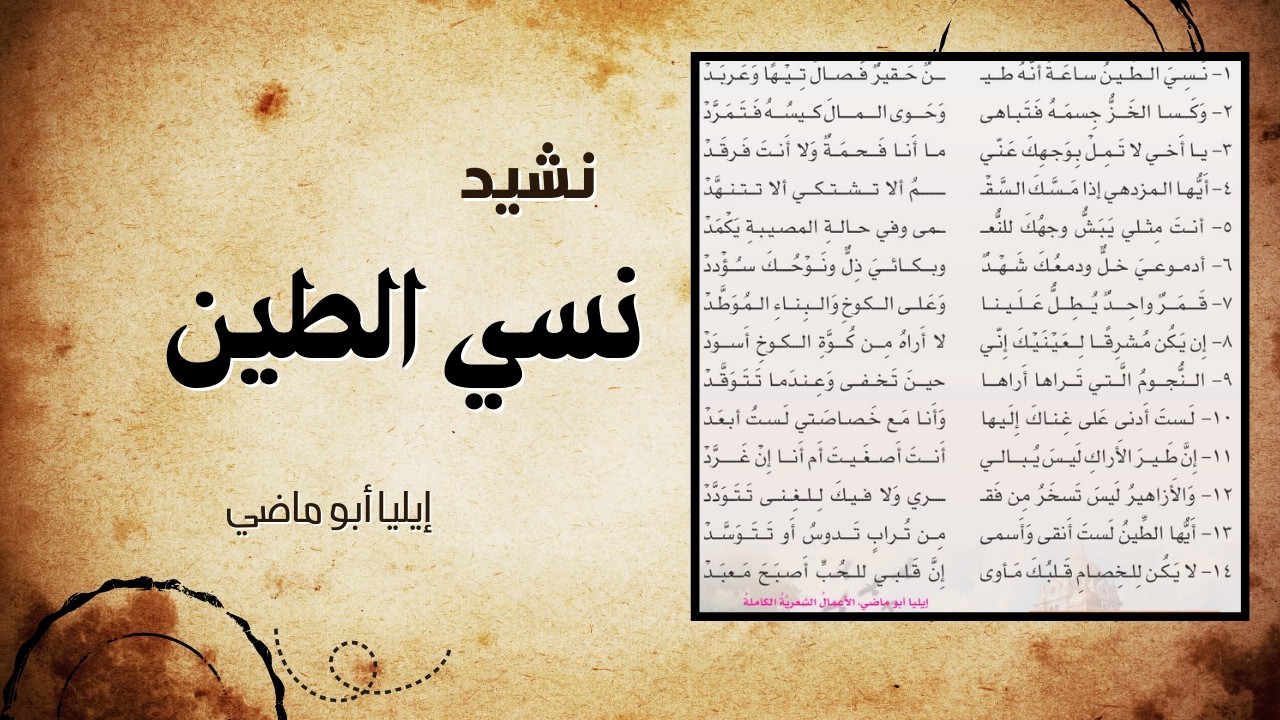 نشيد
نسي الطين
إيليا أبو ماضي
١- نَسِيَ الطينُ ساعَةً أَنَّهُ طيـ ـنٌ حَقيرٌ فَصالَ تِيْهًا وَعَربَدْ
٢- وَكَسا الخَزُّ جِسمَهُ فَتَباهى وَحَوى المالَ كيسُهُ فَتَمَرَّدْ
٣- يا أَخي لا تَمِلْ بِوَجهِكَ عَنّي ما أَنا فَحمَةٌ وَلا أَنتَ فَرقَدْ
٤- أَيُّها المزدهي إذا مَسَّكَ السَّقْـ ـمُ ألا تشتكي ألا تتنهَّدْ
٥- أنتَ مِثلي يَبَشُّ وجهُكَ للنُّعـ ـمى وفي حالةِ المصيبةِ يَكْمَدْ
٦- أدموعيَ خلٌّ ودمعُكَ شَهْدٌ وبكائيَ ذِلٌّ ونَوْحُكَ سُؤْددْ
٧- قَمَرٌ واحِدٌ يُطِلُّ عَلَينا وَعَلى الكوخِ وَالبِناءِ المُوَطَّدْ
٨- إن يَكُن مُشرقًا لِعَيْنَيْكَ إنّي لا أَراهُ مِن كُوَّةِ الكوخِ أسوَدْ
٩- النُّجومُ الَّتي تَراها أَراها حينَ تَخفى وَعِندَما تَتَوَقَّدْ
١٠- لَستَ أدنى عَلى غِناكَ إلَيها وَأَنا مَع خَصاصَتي لَستُ أبعَدْ
١١- إنَّ طَيرَ الأَراكِ لَيسَ يُبالي أَنتَ أَصغَيتَ أَم أَنا إنْ غَرَّدْ
١٢- وَالأَزاهيرُ لَيسَ تَسخَرُ مِن فَقـ ـري وَلا فيكَ لِلغِنى تَتَوَدَّدْ
١٣- أَيُّها الطِّينُ لَستَ أَنقى وَأَسمى مِن تُرابٍ تَدوسُ أَو تَتَوَسَّدْ
١٤- لا يَكُن لِلخِصامِ قَلبُكَ مَأوى إنَّ قَلبي للحُبِّ أصبَحَ مَعبَدْ
إيليا أبو ماضي، الأعمالُ الشعريّةُ الكاملةُ